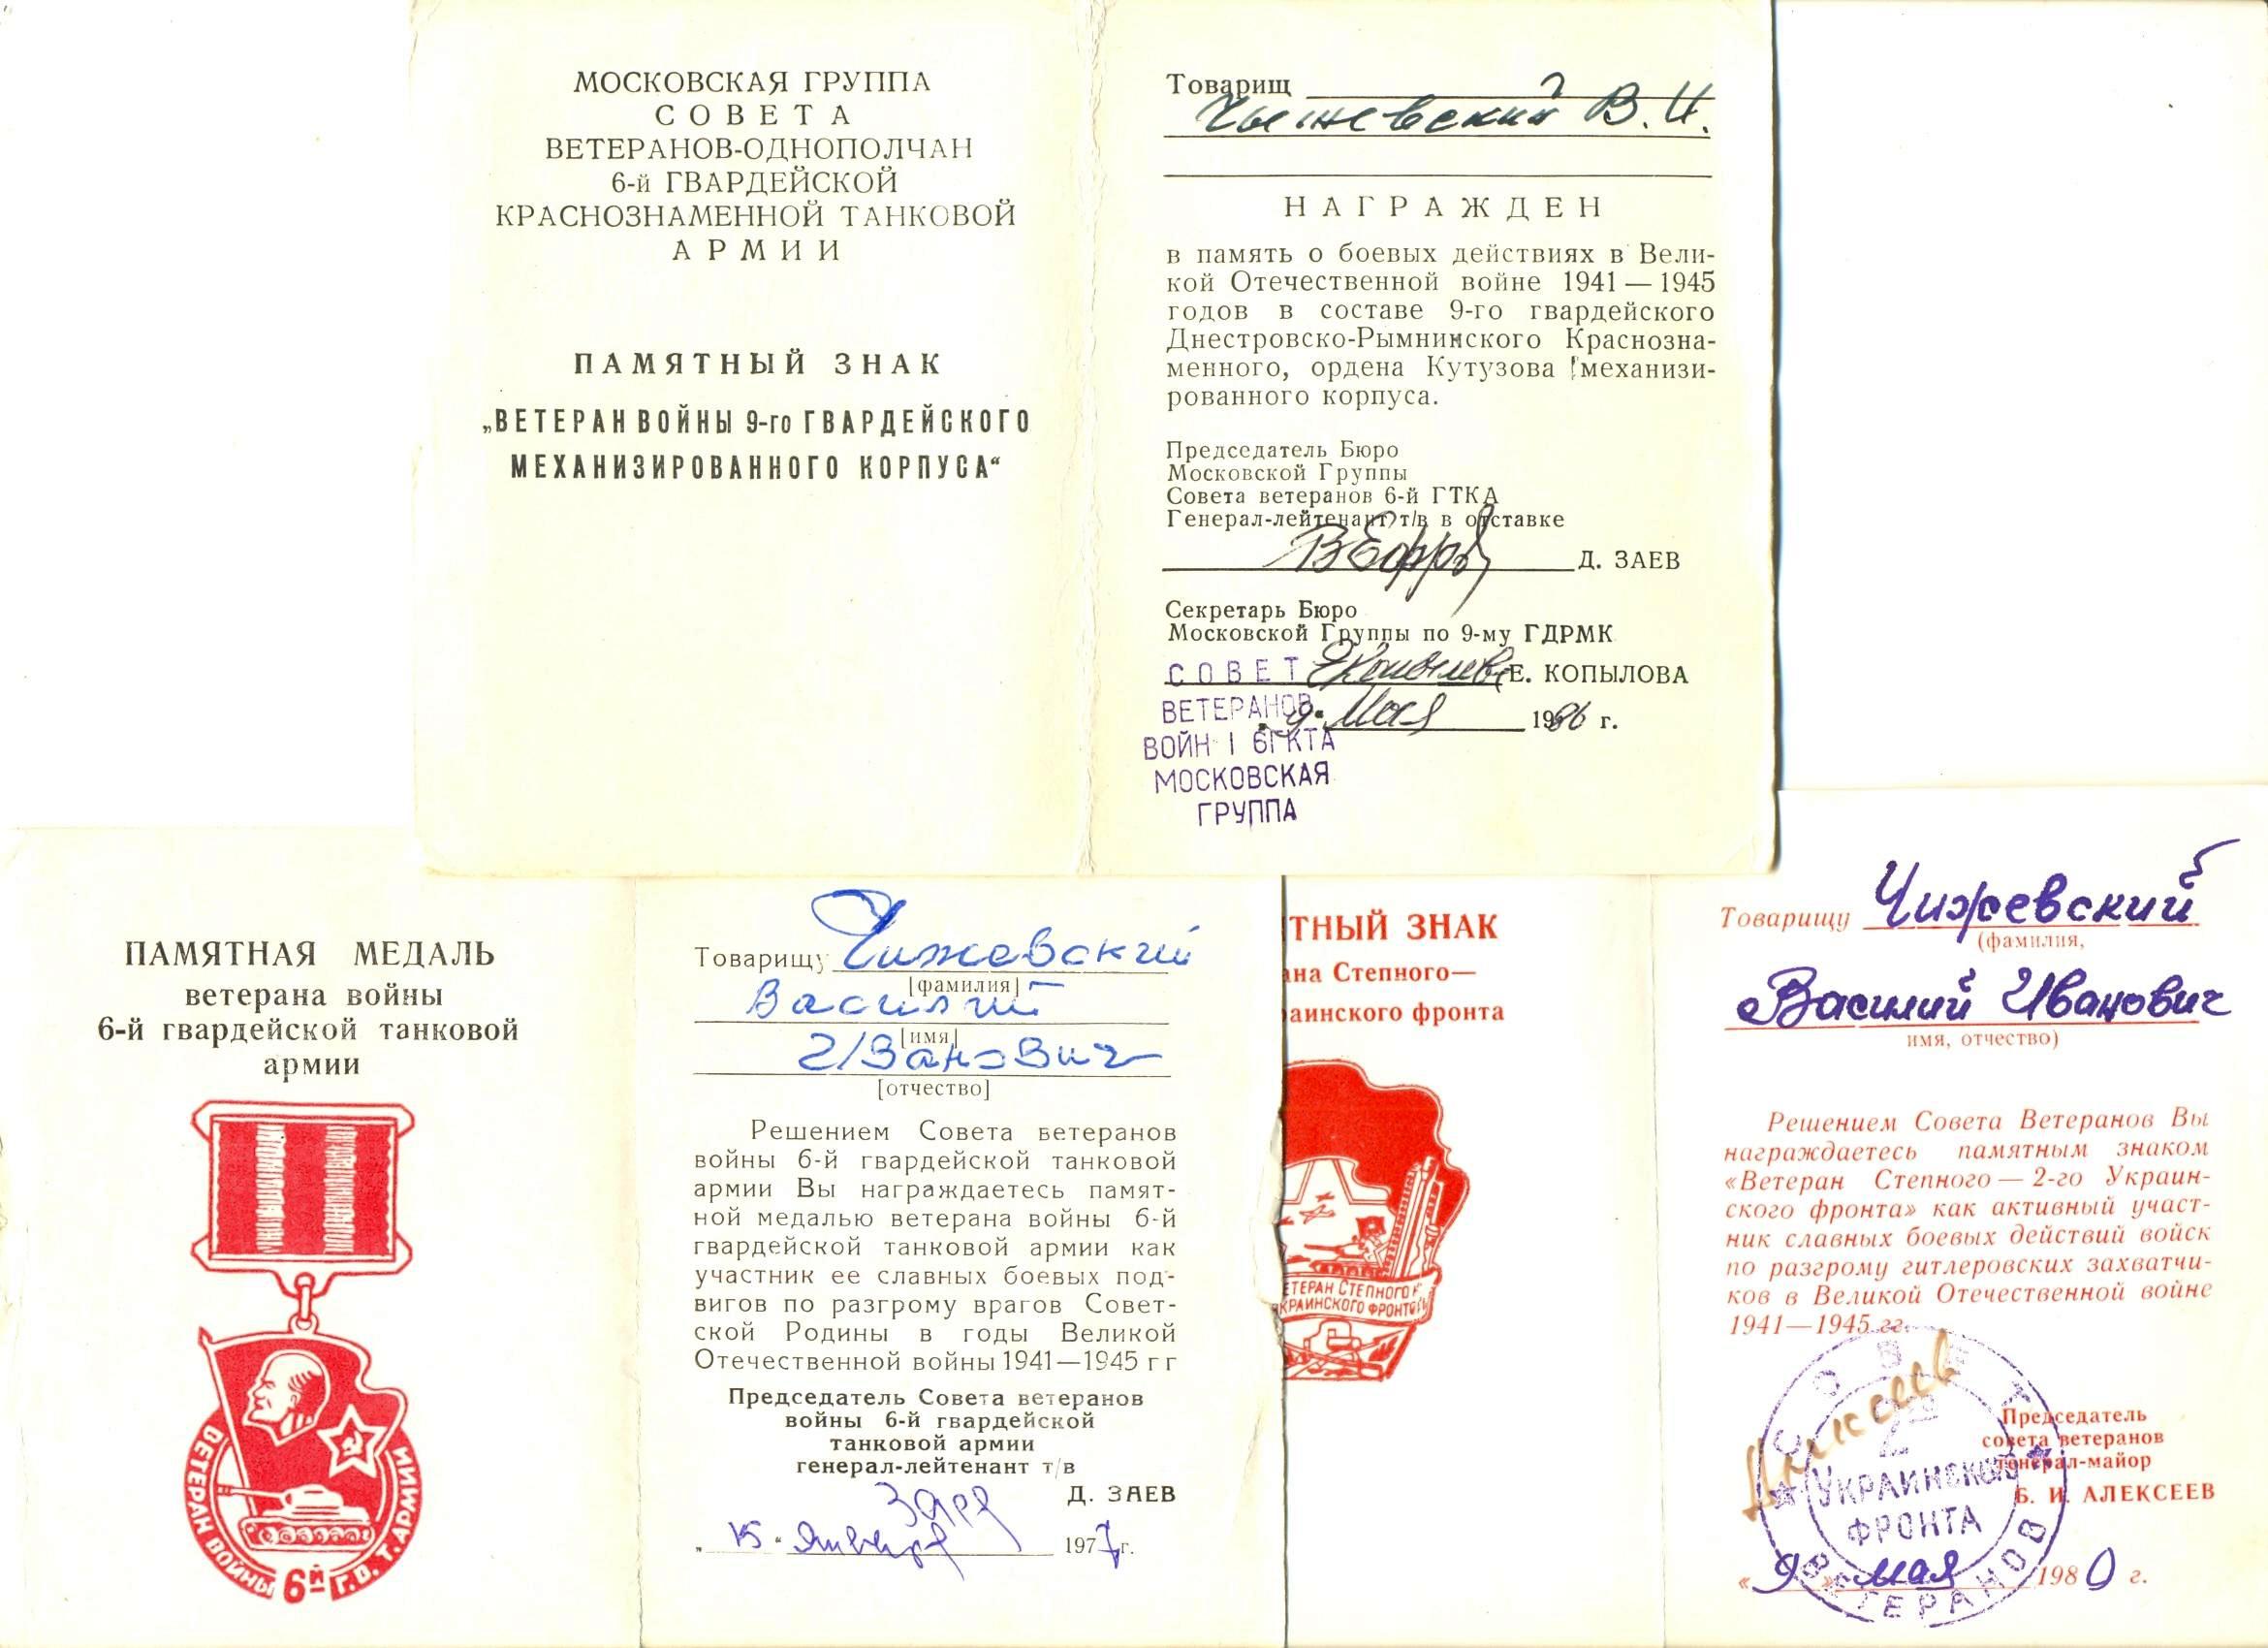 МОСКОВСКАЯ ГРУППА
СОВЕТА
ВЕТЕРАНОВ-ОДНОПОЛЧАН
6-й ГВАРДЕЙСКОЙ
КРАСНОЗНАМЕННОЙ ТАНКОВОЙ
АРМИИ
ПАМЯТНЫЙ ЗНАК
„ВЕТЕРАН ВОЙНЫ 9-го ГВАРДЕЙСКОГО
МЕХАНИЗИРОВАННОГО КОРПУСА“
Товарищ
Чыжевский В. И.
НАГРАЖДЕН
в память о боевых действиях в Вели-
кой Отечественной войне 1941 — 1945
годов в составе 9-го гвардейского
Днестровско-Рымнинского Краснозна-
менного, ордена Кутузова механизи-
рованного корпуса.
Председатель Бюро
Московской Группы
Совета ветеранов 6-й ГТКА
Генерал-лейтенант т/в в отставке
Д. ЗАЕВ
Секретарь Бюро
Московской Группы по 9-му ГДРМК
СОВЕТ Е. КОПЫЛОВА
ВЕТЕРАНОВ „9“ Мая 1986 г.
ВОЙН I 6ГКТА
МОСКОВСКАЯ
ГРУППА
ПАМЯТНАЯ МЕДАЛЬ
ветерана войны
6-й гвардейской танковой
армии
ВЕТЕРАН ВОЙНЫ 6й Г.О.Т. АРМИИ
Товарищу Чижевский
[фамилия]
Василий
[имя]
Иванович
[отчество]
Решением Совета ветеранов
войны 6-й гвардейской танковой
армии Вы награждаетесь памят-
ной медалью ветерана войны 6-й
гвардейской танковой армии как
участник ее славных боевых под-
вигов по разгрому врагов Совет-
ской Родины в годы Великой
Отечественной войны 1941—1945 г г
Председатель Совета ветеранов
войны 6-й гвардейской
танковой армии
генерал-лейтенант т/в
Д. ЗАЕВ
Заев
„15“ Января 1977 г.
ТНЫЙ ЗНАК
на Степного—
аинского фронта
ЕТЕРАН СТЕПНОГО
КРАИНСКОГО ФРОНТОВ
Товарищу Чижевский
(фамилия,
Василий Иванович
имя, отчество)
Решением Совета Ветеранов Вы
награждаетесь памятным знаком
«Ветеран Степного — 2-го Украин-
ского фронта» как активный участ-
ник славных боевых действий войск
по разгрому гитлеровских захватчи-
ков в Великой Отечественной войне
1941—1945 гг.
Алексеев
Председатель
совета ветеранов
генерал-майор
Б. И. АЛЕКСЕЕВ
СОВЕТ ВЕТЕРАНОВ
2го
УКРАИНСКОГО
ФРОНТА
«9» мая 1980 г.